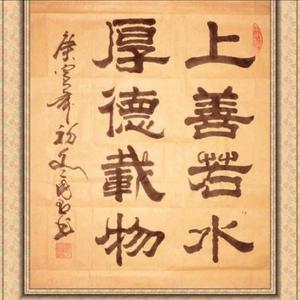 上善若水
厚德載物
庚寅年初